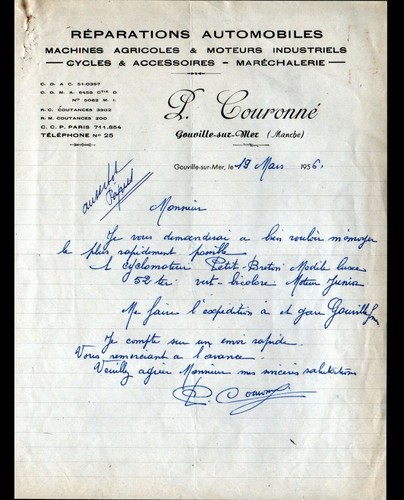 RÉPARATIONS AUTOMOBILES
MACHINES AGRICOLES & MOTEURS INDUSTRIELS
CYCLES & ACCESSOIRES - MARÉCHALERIE
C. O. A. C. 51-0357
C. O. M. A. 6456 Cᵀᴱ D
Nº 5092 M. I.
R. C. COUTANCES 3903
R. M. COUTANCES 300
C. C. P. PARIS 711.854
TÉLÉPHONE Nº 25
P. Couronné
Gouville-sur-Mer (Manche)
Gouville-sur-Mer, le 19 Mars 1956
Monsieur
Je vous demanderai a bien vouloir m'envoyer
le plus rapidement possible
1 cyclomoteur Petit-Breton Modèle luxe
52 ter vert-bicolore Moteur Junior
Me faire l'expédition à et gare Gouville
Je compte sur un envoi rapide.
Vous remerciant a l'avance
Veuillez agréer Monsieur mes sincères salutations
P. Couronné